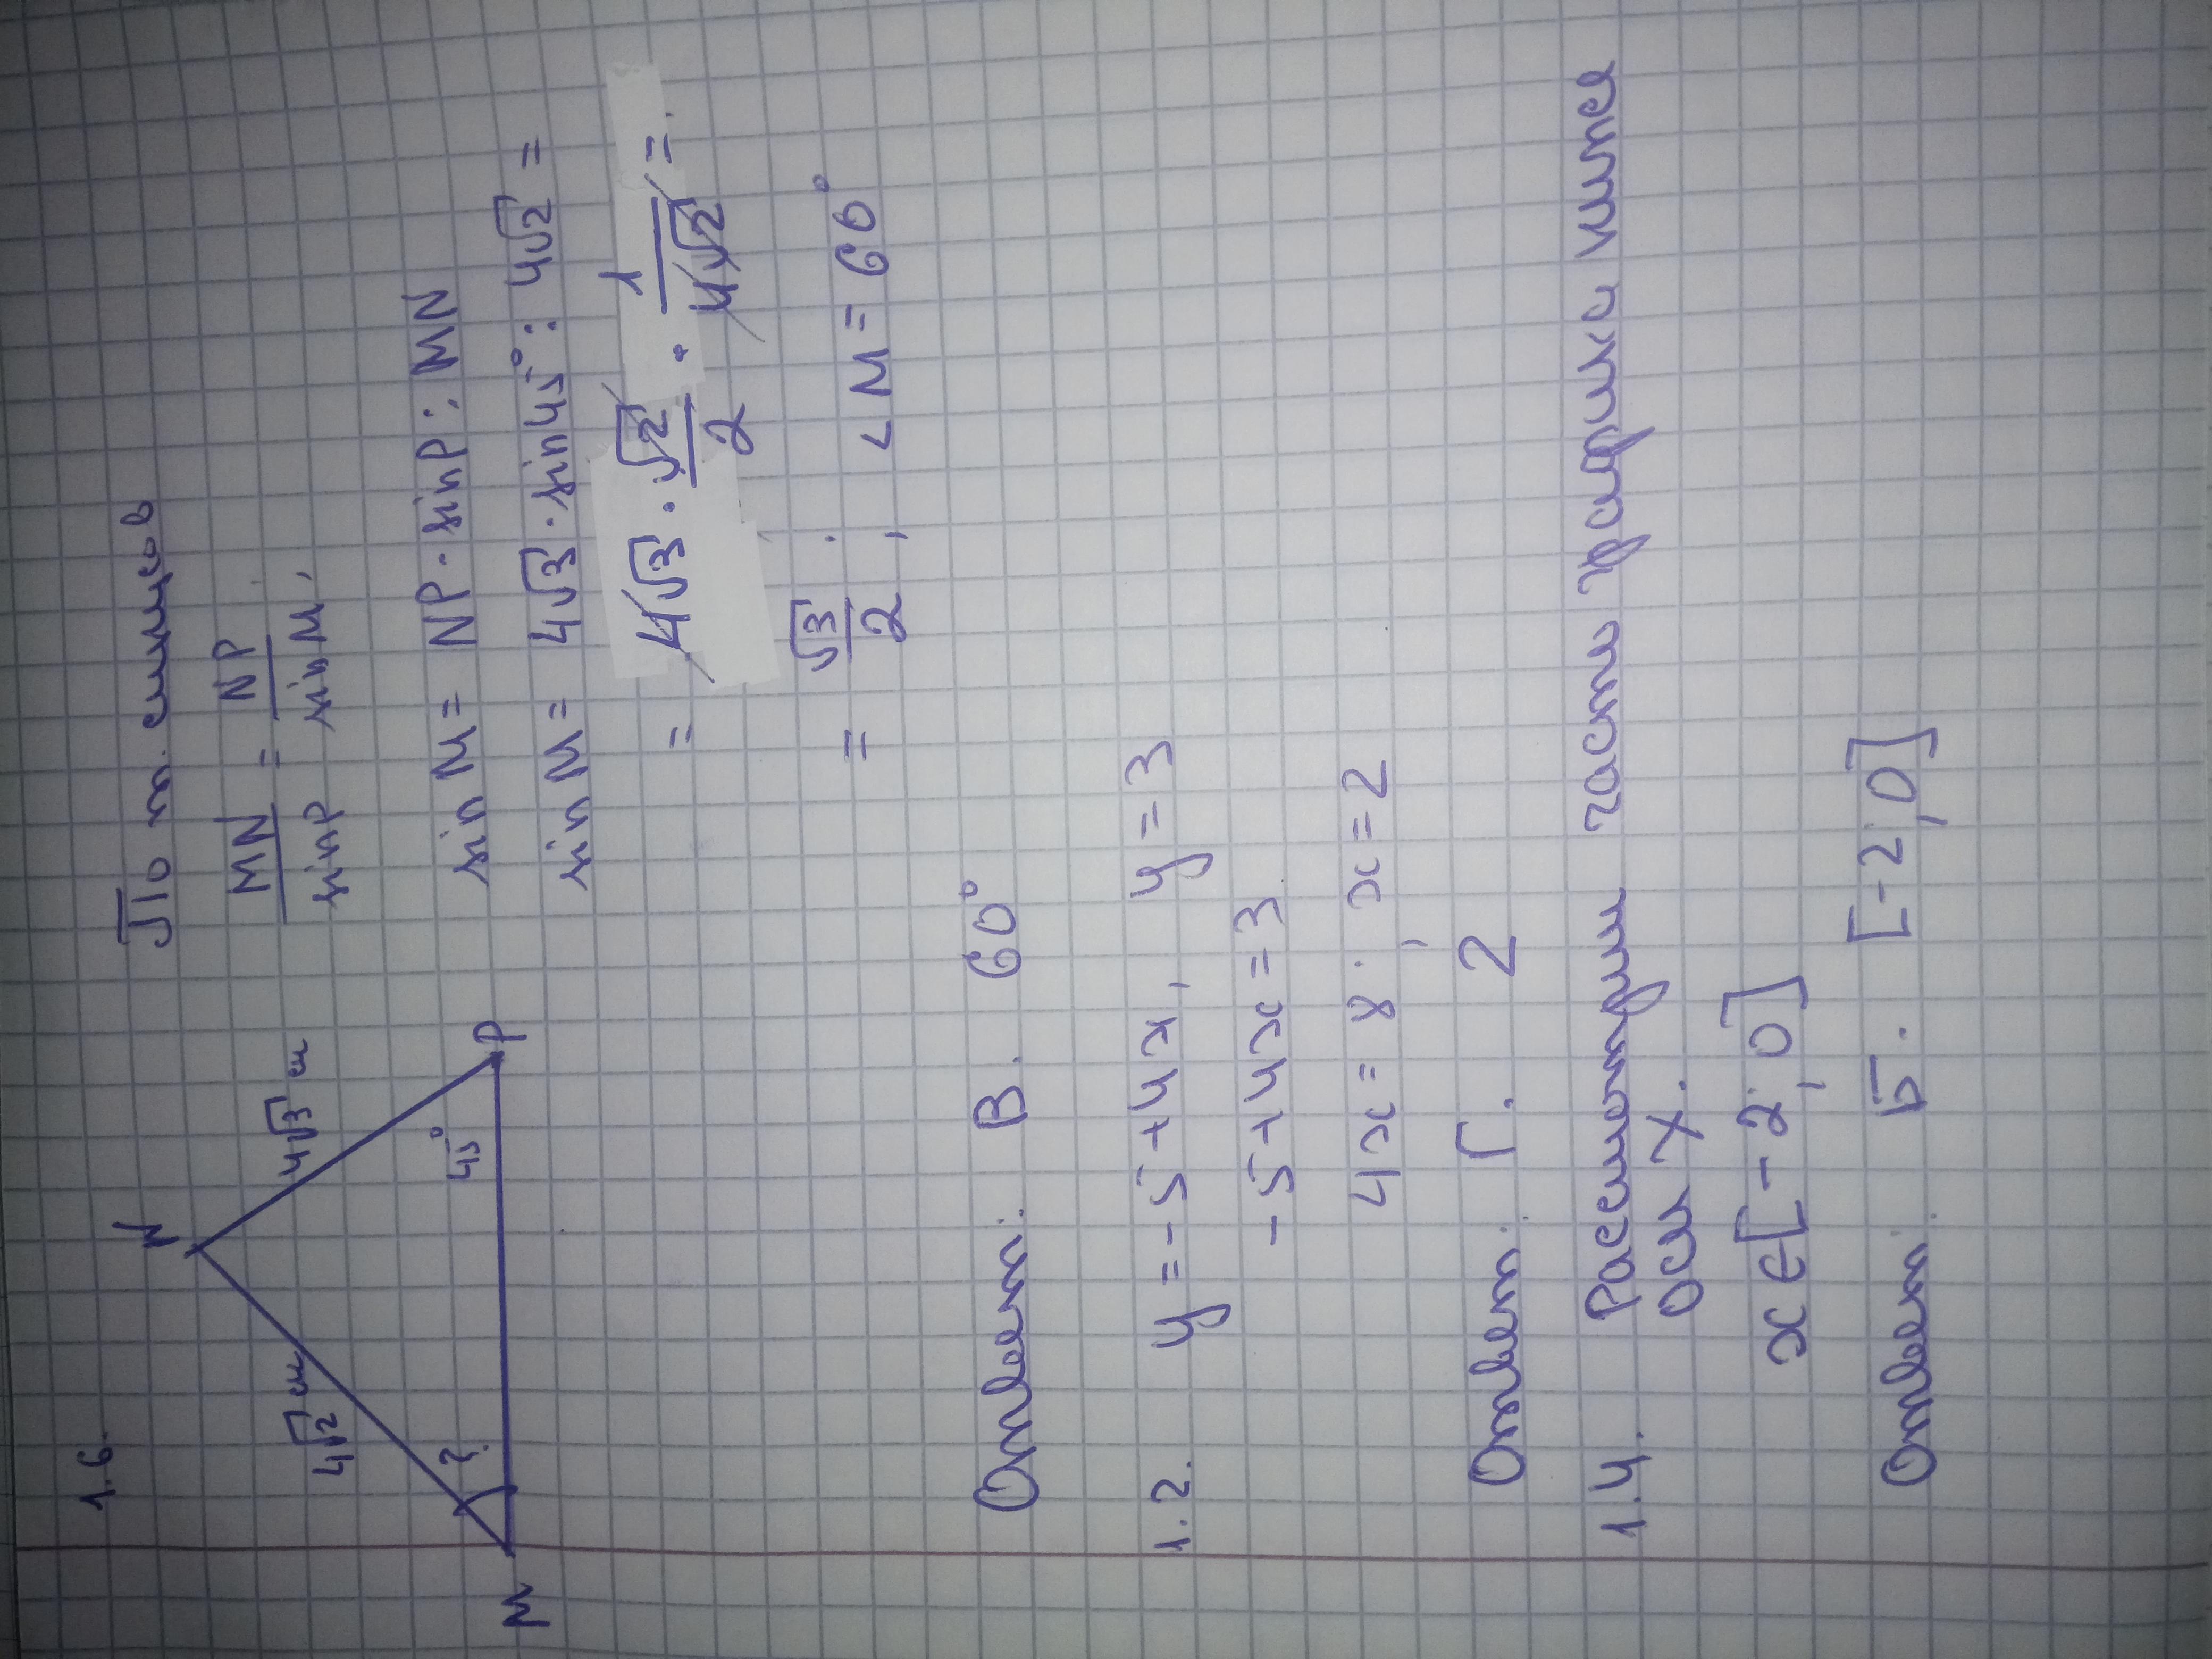 1.6.
N
4√2 см
4√3 см
?
45°
M
P
По т. синусов
MN/sinP = NP/sinM;
sin M = NP · sinP : MN
sin M = 4√3 · sin45° : 4√2 =
= 4√3 · √2/2 · 1/4√2 =
= √3/2; ∠M = 60°
Ответ: В. 60°
1.2. y = -5 + 4x, y = 3
-5 + 4x = 3
4x = 8; x = 2
Ответ: Г. 2
1.4. Рассмотрим части графика ниже
оси X.
x ∈ [-2; 0]
Ответ: Б. [-2; 0]